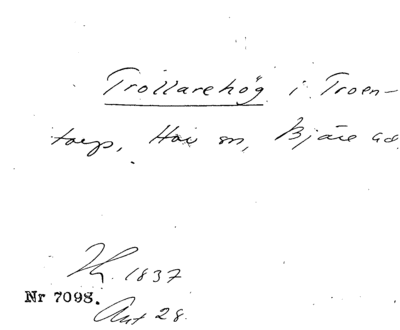 Trollarehög i Troen-
torp, Hov sn, Bjäre hd.
1837
Nr 7098.
Ant 28.